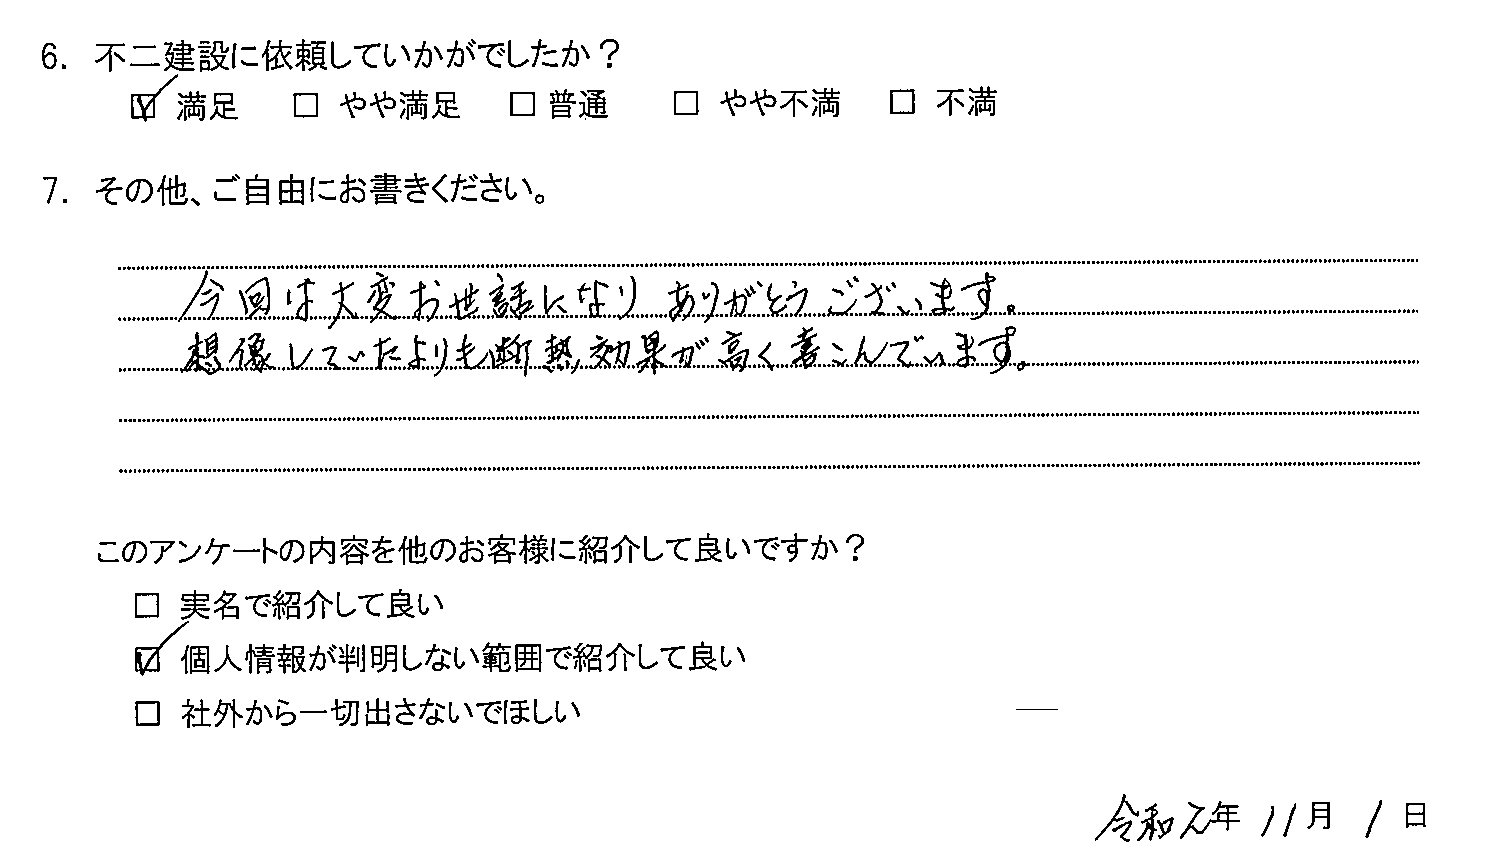 6. 不二建設に依頼していかがでしたか？
☑ 満足 □ やや満足 □ 普通 □ やや不満 □ 不満
7. その他、ご自由にお書きください。
今回は大変お世話になり ありがとうございます。
想像していたよりも断熱効果が高く喜こんでいます。
このアンケートの内容を他のお客様に紹介して良いですか？
□ 実名で紹介して良い
☑ 個人情報が判明しない範囲で紹介して良い
□ 社外から一切出さないでほしい
令和元年 11月 1日